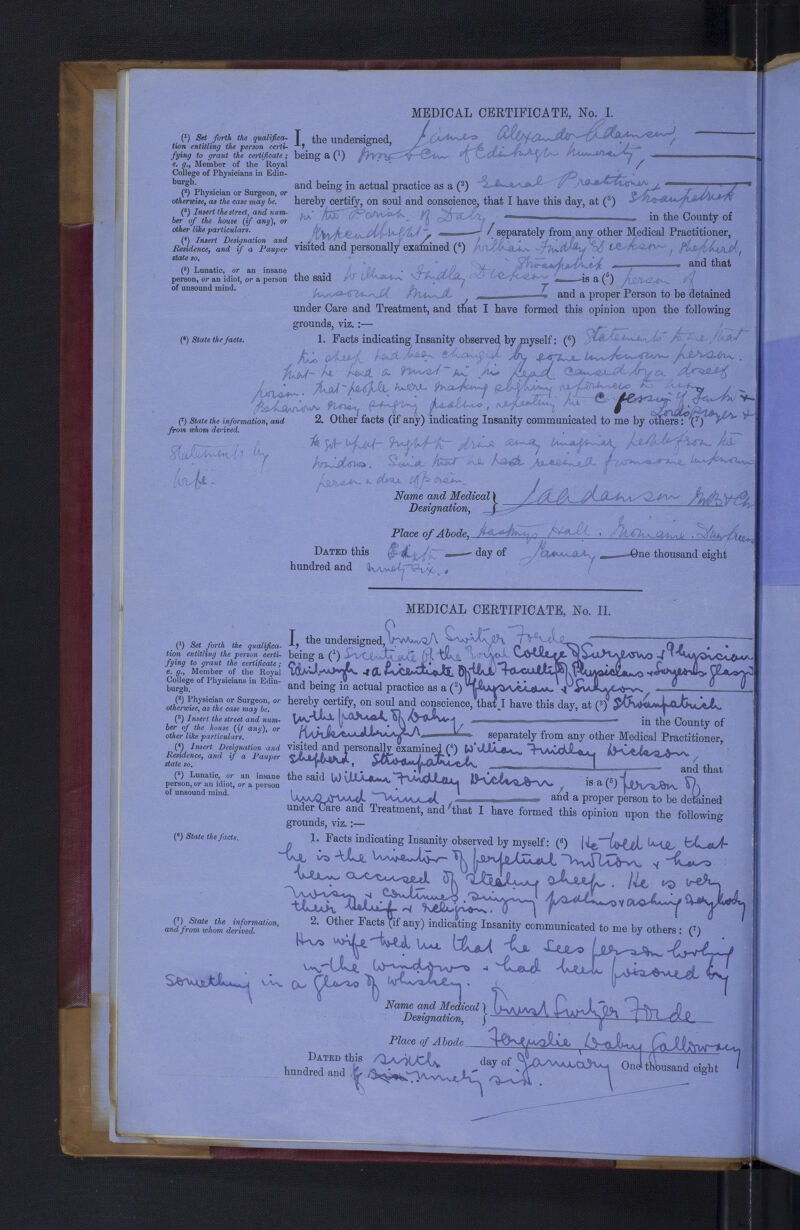 MEDICAL CERTIFICATE, No. I.
(1) Set forth the qualifica-
tion entitling the person certi-
fying to grant the certificate;
e. g., Member of the Royal
College of Physicians in Edin-
burgh.
(2) Physician or Surgeon, or
otherwise, as the case may be.
(3) Insert the street, and num-
ber of the house (if any), or
other like particulars.
(4) Insert Designation and
Residence, and if a Pauper
state so.
(5) Lunatic, or an insane
person, or an idiot, or a person
of unsound mind.
I, the undersigned, James Alexander Adamson,
being a (1) M.B. & C.M. of Edinburgh University,
and being in actual practice as a (2) General Practitioner,
hereby certify, on soul and conscience, that I have this day, at (3) Stroanpatrick
in the Parish of Dalry, in the County of
Kirkcudbright, separately from any other Medical Practitioner,
visited and personally examined (4) William Findlay Dickson, Shepherd,
Stroanpatrick and that
the said William Findlay Dickson is a (5) person of
unsound mind, and a proper Person to be detained
under Care and Treatment, and that I have formed this opinion upon the following
grounds, viz. :—
(6) State the facts.
1. Facts indicating Insanity observed by myself: (6) Statements to me that
his sheep had been changed by some unknown person.
That he had a in his head caused by a dose of
poison. That people were making slighting references to him
Behaviour noisy singing psalms, repeating the Confession of Faith &
Lords Prayer &
(7) State the information, and
from whom derived.
2. Other facts (if any) indicating Insanity communicated to me by others: (7)
Statements by
wife.
He got up at night to drive away imaginary people from the
windows. Said that he had received from some unknown
person a dose of poison.
Name and Medical Designation, J A Adamson M.B. & C.M.
Place of Abode, Hastings Hall. Moniaive.
DATED this Sixth day of January One thousand eight
hundred and ninety six.
MEDICAL CERTIFICATE, No. II.
(1) Set forth the qualifica-
tion entitling the person certi-
fying to grant the certificate;
e. g., Member of the Royal
College of Physicians in Edin-
burgh.
(2) Physician or Surgeon, or
otherwise, as the case may be.
(3) Insert the street and num-
ber of the house (if any), or
other like particulars.
(4) Insert Designation and
Residence, and if a Pauper
state so.
(5) Lunatic, or an insane
person, or an idiot, or a person
of unsound mind.
I, the undersigned, Ernest Switzer Forde
being a (1) Licentiate of the Royal College of Surgeons & Physicians
Edinburgh & a Licentiate of the Faculty of Physicians & Surgeons Glasgow
and being in actual practice as a (2) Physician & Surgeon,
hereby certify, on soul and conscience, that I have this day, at (3) Stroanpatrick
in the parish of Dalry, in the County of
Kirkcudbright separately from any other Medical Practitioner,
visited and personally examined (4) William Findlay Dickson,
Shepherd, Stroanpatrick and that
the said William Findlay Dickson, is a (5) person of
unsound mind, and a proper person to be detained
under Care and Treatment, and that I have formed this opinion upon the following
grounds, viz. :—
(6) State the facts.
1. Facts indicating Insanity observed by myself: (6) He told me that
he is the inventor of perpetual motion & has
been accused of stealing sheep. He is very
noisy & continues singing psalms & asking everybody
their belief & religion.
(7) State the information,
and from whom derived.
2. Other Facts (if any) indicating Insanity communicated to me by others: (7)
His wife told me that he sees person looking
in the windows & had been poisoned by
something in a glass of whiskey.
Name and Medical Designation, Ernest Switzer Forde
Place of Abode Ferguslie, Dalry Galloway
DATED this sixth day of January One thousand eight
hundred and ninety six.